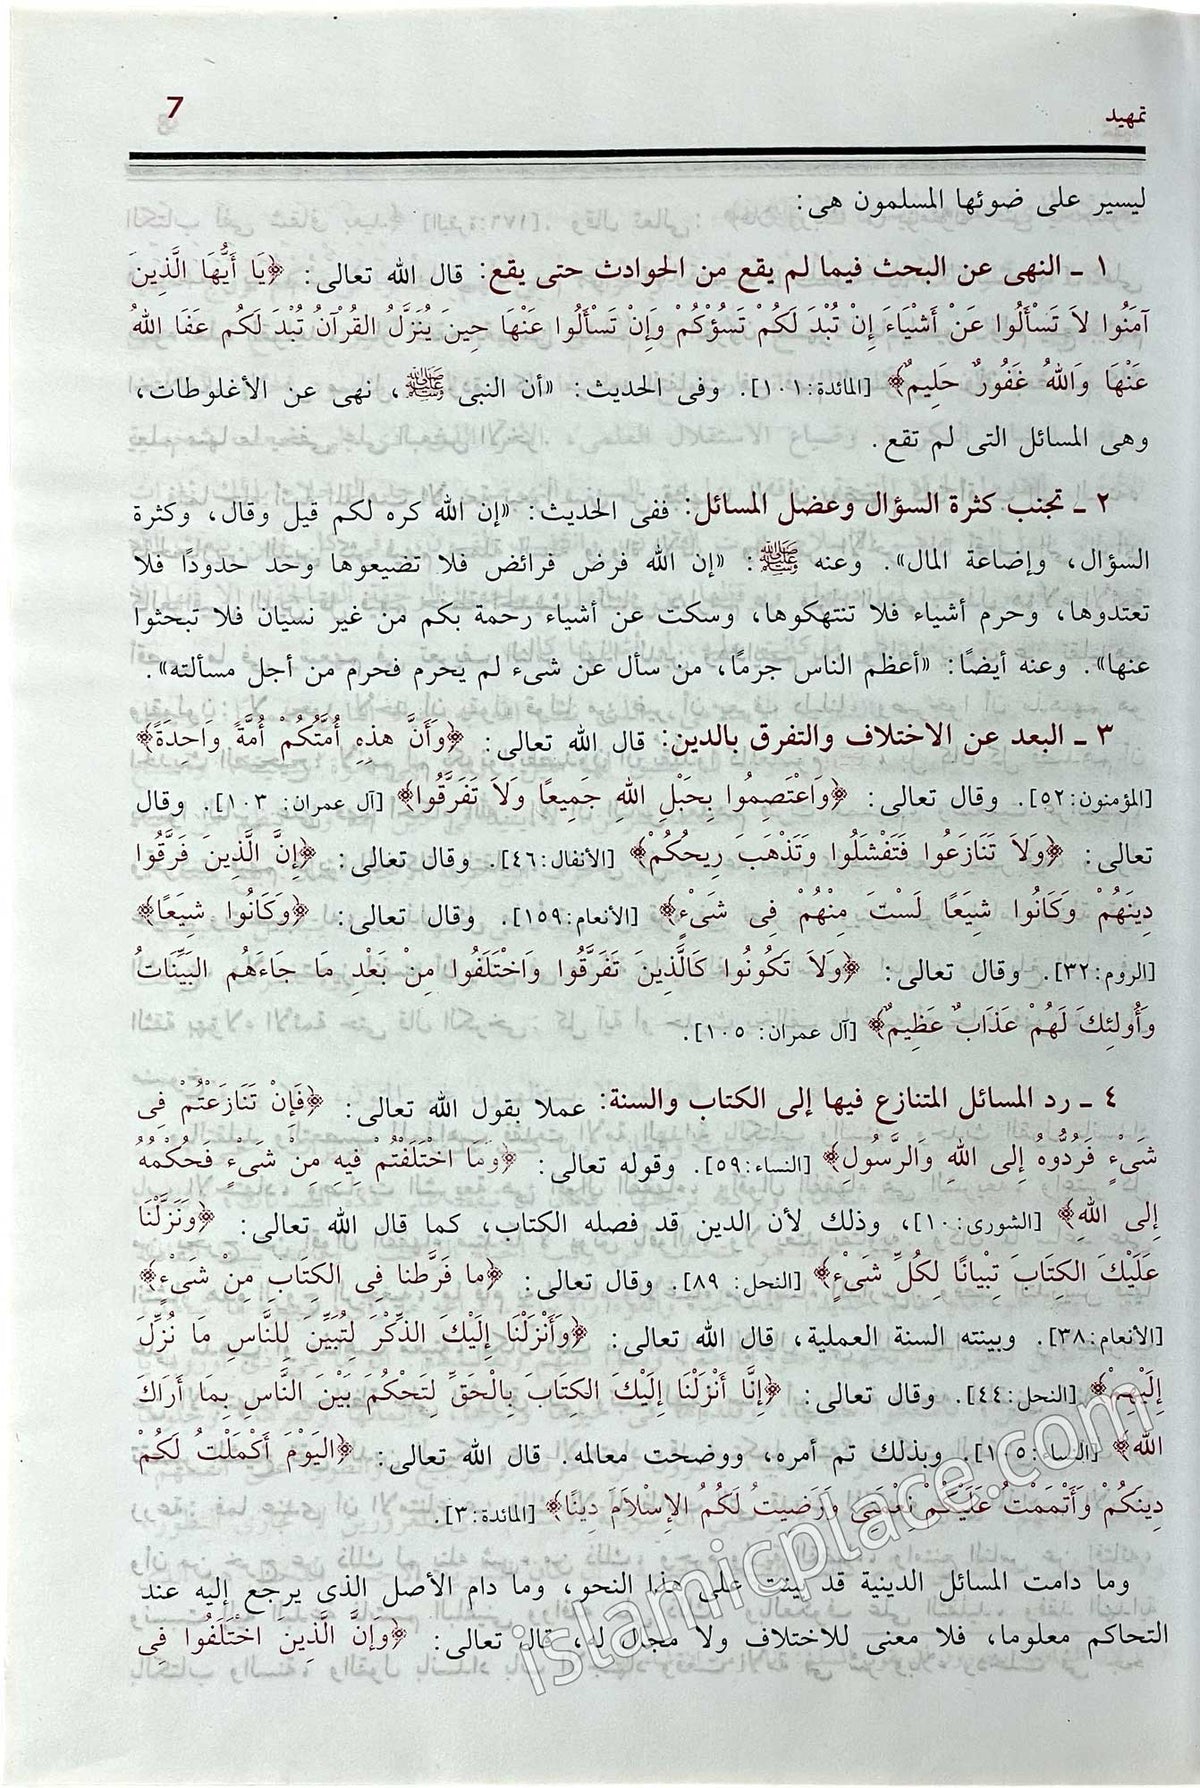 تمهيد 7
ليسير على ضوئها المسلمون هى:
١ ـ النهى عن البحث فيما لم يقع من الحوادث حتى يقع: قال الله تعالى: ﴿يَا أَيُّهَا الَّذِينَ
آمَنُوا لاَ تَسْأَلُوا عَنْ أَشْيَاءَ إِن تُبْدَ لَكُمْ تَسُؤْكُمْ وَإِنْ تَسْأَلُوا عَنْهَا حِينَ يُنَزَّلُ القُرْآنُ تُبْدَ لَكُم عَفَا اللهُ
عَنْهَا وَاللهُ غَفُورٌ حَلِيمٌ﴾ [المائدة:١٠١]. وفى الحديث: «أن النبى ﷺ، نهى عن الأغلوطات،
وهى المسائل التى لم تقع.
٢ ـ تجنب كثرة السؤال وعضل المسائل: ففى الحديث: «إن الله كره لكم قيل وقال، وكثرة
السؤال، وإضاعة المال». وعنه ﷺ: «إن الله فرض فرائض فلا تضيعوها وحد حدودًا فلا
تعتدوها، وحرم أشياء فلا تنتهكوها، وسكت عن أشياء رحمة بكم من غير نسيان فلا تبحثوا
عنها». وعنه أيضًا: «أعظم الناس جرمًا، من سأل عن شىء لم يحرم فحرم من أجل مسألته».
٣ ـ البعد عن الاختلاف والتفرق بالدين: قال الله تعالى: ﴿وَأَنَّ هذِهِ أُمَّتُكُمْ أُمَّةً وَاحِدَةً﴾
[المؤمنون:٥٢]. وقال تعالى: ﴿وَاعْتَصِمُوا بِحَبْلِ اللهِ جَمِيعًا وَلاَ تَفَرَّقُوا﴾ [آل عمران: ١٠٣]. وقال
تعالى: ﴿وَلاَ تَنَازَعُوا فَتَفْشَلُوا وَتَذْهَبَ رِيحُكُمْ﴾ [الأنفال:٤٦]. وقال تعالى: ﴿إِنَّ الَّذِينَ فَرَّقُوا
دِينَهُمْ وَكَانُوا شِيَعًا لَسْتَ مِنْهُمْ فِى شَىْءٍ﴾ [الأنعام:١٥٩]. وقال تعالى: ﴿وَكَانُوا شِيَعًا﴾
[الروم:٣٢]. وقال تعالى: ﴿وَلاَ تَكُونُوا كَالَّذِينَ تَفَرَّقُوا وَاخْتَلَفُوا مِنْ بَعْدِ مَا جَاءَهُم البَيِّنَاتُ
وَأُولئِكَ لَهُمْ عَذَابٌ عَظِيمٌ﴾ [آل عمران: ١٠٥].
٤ ـ رد المسائل المتنازع فيها إلى الكتاب والسنة: عملا بقول الله تعالى: ﴿فَإِنْ تَنَازَعْتُمْ فِى
شَىْءٍ فَرُدُّوهُ إِلى اللهِ وَالرَّسُولِ﴾ [النساء:٥٩]. وقوله تعالى: ﴿وَمَا اخْتَلَفْتُم فِيهِ مِنْ شَىْءٍ فَحُكْمُهُ
إِلى اللهِ﴾ [الشورى:١٠]، وذلك لأن الدين قد فصله الكتاب، كما قال الله تعالى: ﴿وَنَزَّلْنَا
عَلَيْكَ الكِتَابَ تِبْيانًا لِكُلِّ شَىْءٍ﴾ [النحل: ٨٩]. وقال تعالى: ﴿ما فَرَّطنا فِى الكِتَابِ مِنْ شَىْءٍ﴾
[الأنعام:٣٨]. وبينته السنة العملية، قال الله تعالى: ﴿وَأَنْزَلْنَا إِلَيْكَ الذِّكْرَ لِتُبَيِّنَ لِلنَّاسِ مَا نُزِّلَ
إِلَيْهِمْ﴾ [النحل:٤٤]. وقال تعالى: ﴿إِنَّا أَنْزَلْنَا إِلَيْكَ الكِتَابَ بِالْحَقِّ لِتَحْكُمَ بَيْنَ النَّاسِ بِمَا أَرَاكَ
اللهُ﴾ [النساء:١٠٥]. وبذلك تم أمره، ووضحت معالمه. قال الله تعالى: ﴿اليَوْمَ أَكْمَلْتُ لَكُمْ
دِينَكُمْ وَأَتْمَمْتُ عَلَيْكُمْ نِعْمَتِى وَرَضِيتُ لَكُمُ الإِسْلاَمَ دِينًا﴾ [المائدة:٣].
وما دامت المسائل الدينية قد بينت على هذا النحو، وما دام الأصل الذى يرجع إليه عند
التحاكم معلوما، فلا معنى للاختلاف ولا مجال له، قال تعالى: ﴿وَإِنَّ الَّذِينَ اخْتَلَفُوا فِى
islamicplace.com